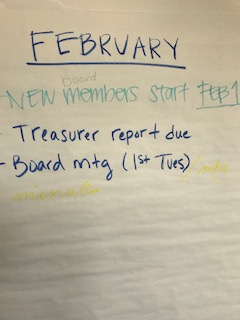 FEBRUARY
board
- NEW members start FEB 1
- Treasurer report due
- Board mtg (1st Tues)
minutes